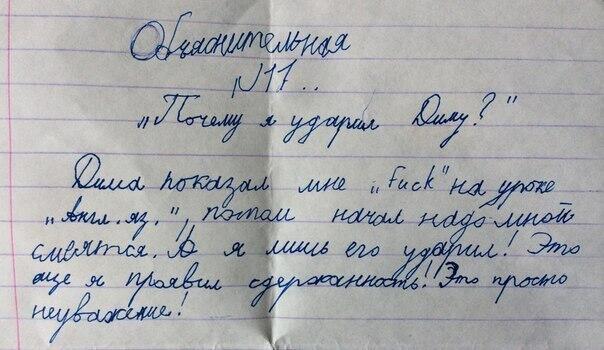 Объяснительная
N17..
„Почему я ударил Диму?"
Дима показал мне „Fuck" на уроке
„Англ.яз.", потом начал надо мной
смеятся. А я лишь его ударил! Это
еще я проявил сдержанность! Это просто
неуважение!